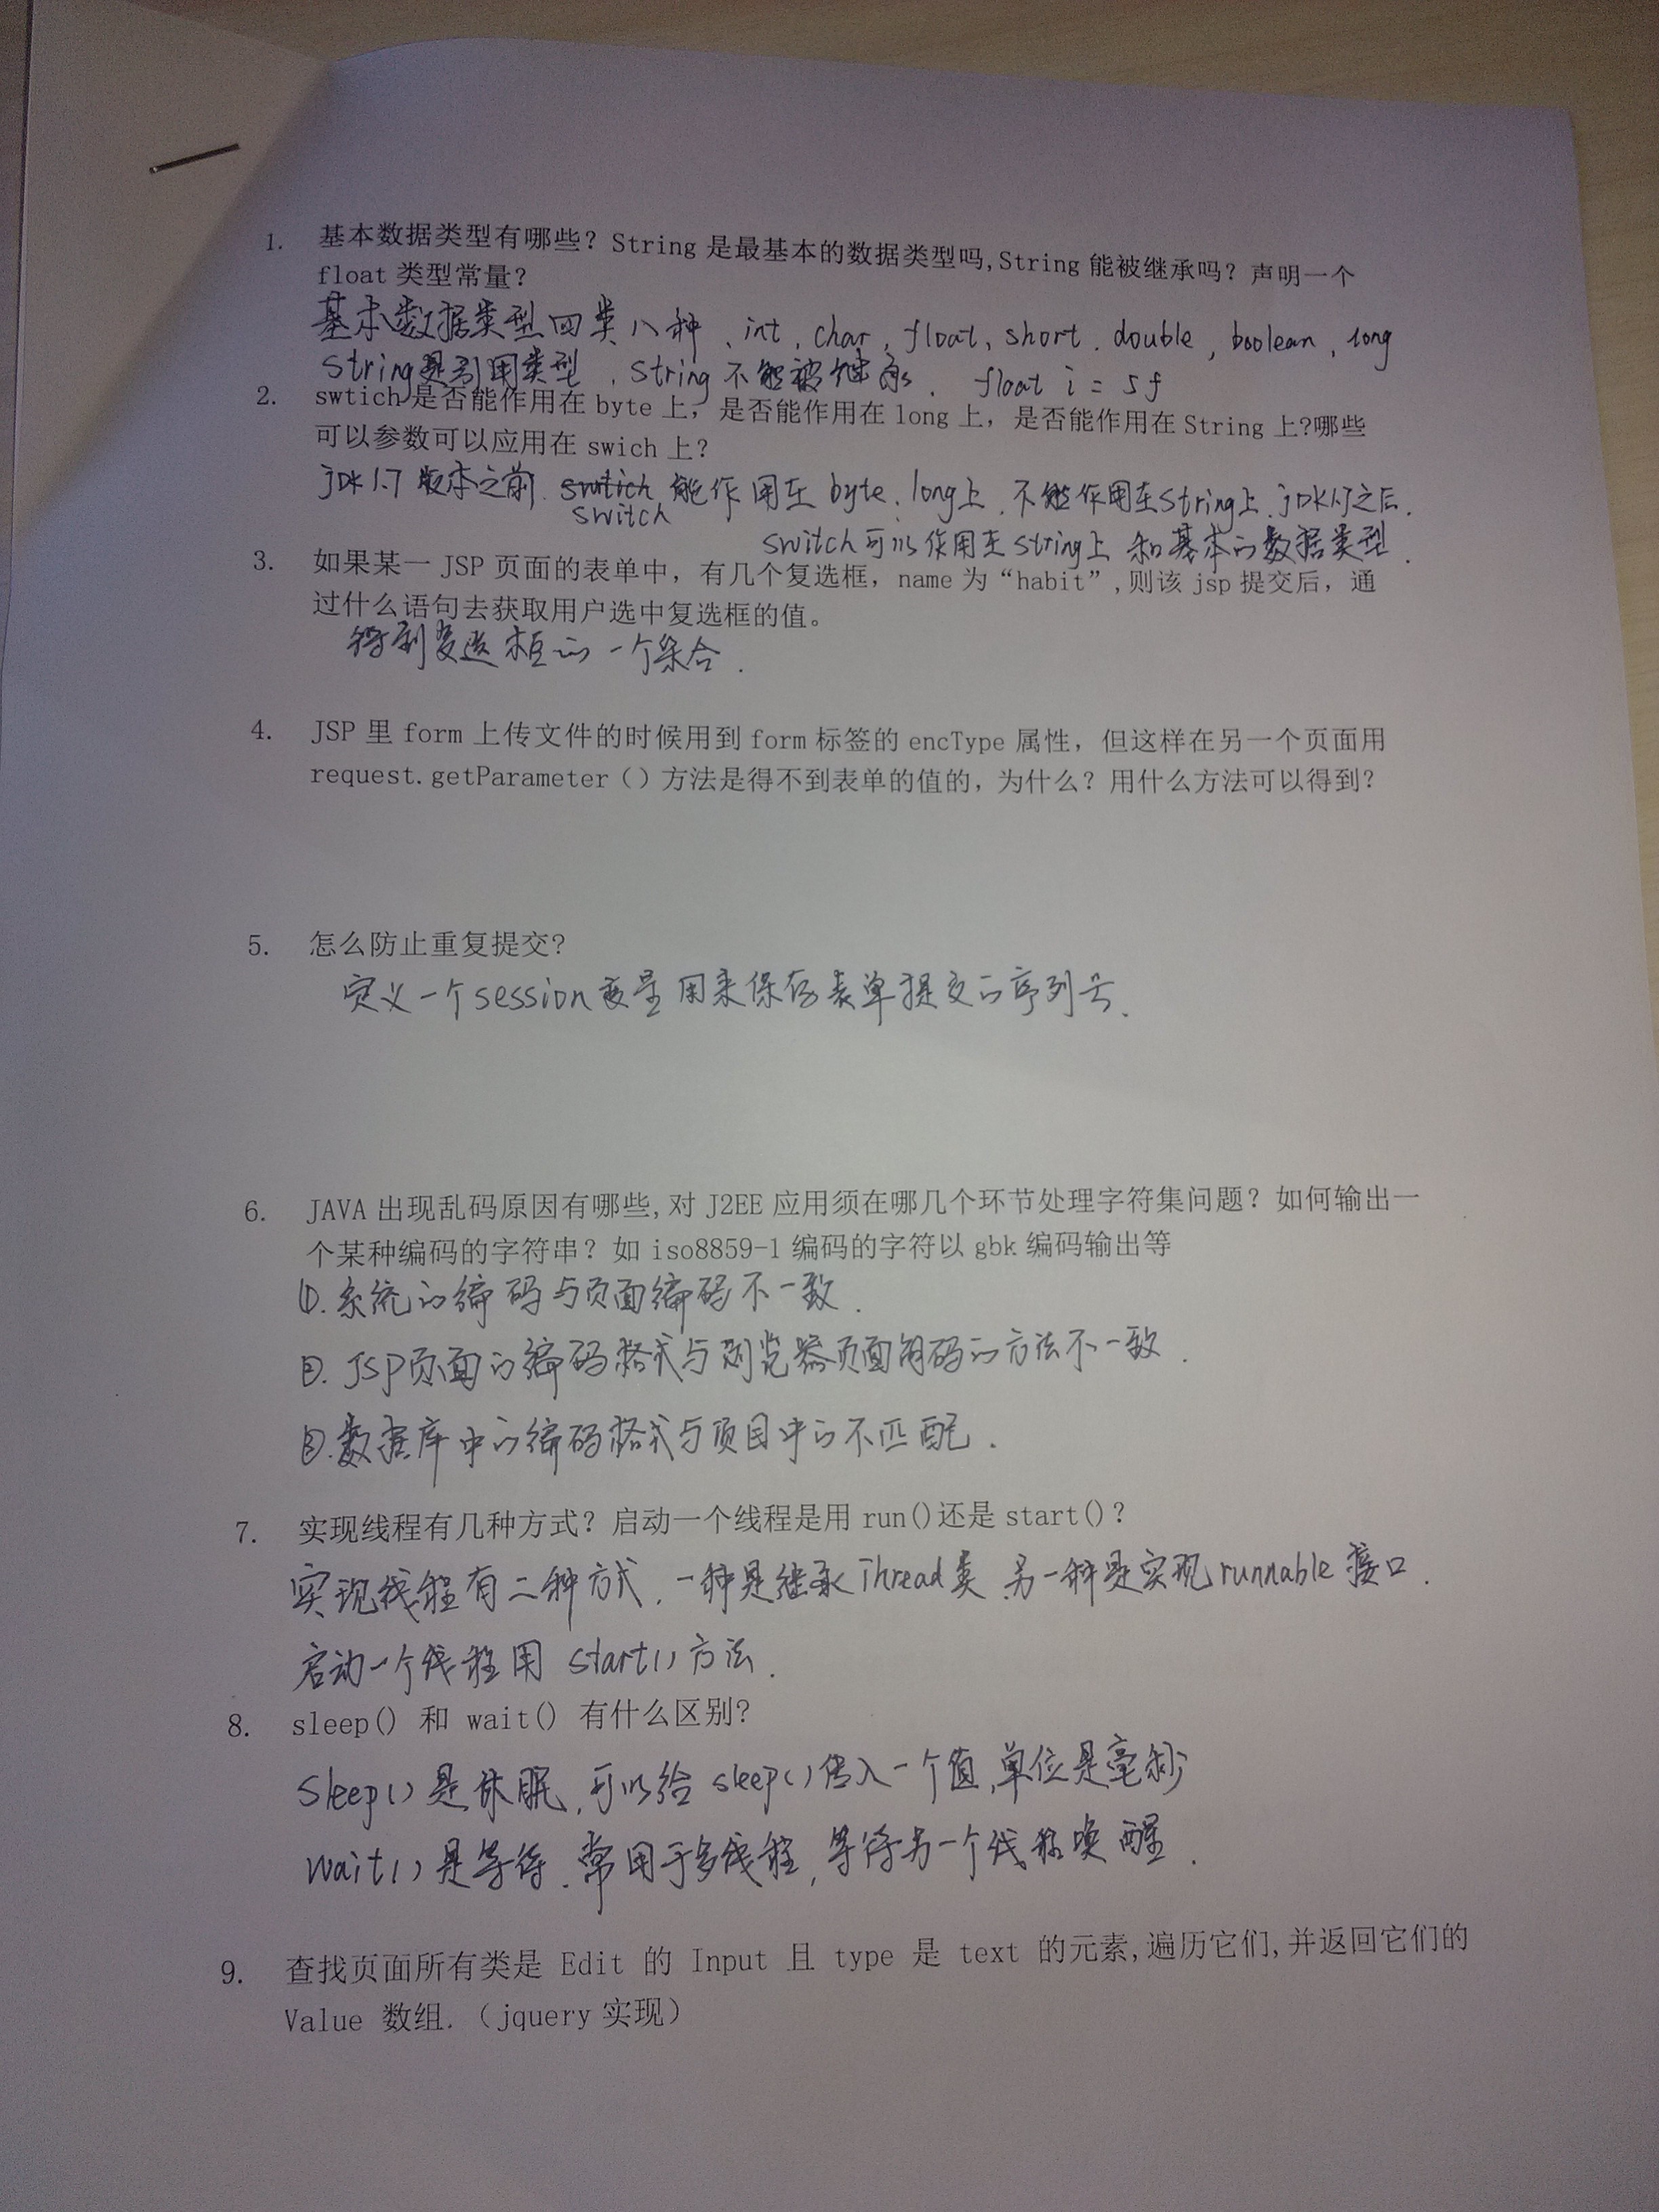 1. 基本数据类型有哪些？String 是最基本的数据类型吗,String 能被继承吗？声明一个
float 类型常量？
基本数据类型四类八种、int、char、float、short、double、boolean、long
String是引用类型、String不能被继承. float i = 5f
2. swtich 是否能作用在 byte 上，是否能作用在 long 上，是否能作用在 String 上?哪些
可以参数可以应用在 swich 上？
JDK1.7 版本之前、swtich 能作用在 byte、long上、不能作用在String上、JDK1.7之后.
switch
switch可以作用在String上 和基本的数据类型.
3. 如果某一 JSP 页面的表单中，有几个复选框，name 为“habit”,则该 jsp 提交后，通
过什么语句去获取用户选中复选框的值。
得到复选框的一个集合.
4. JSP 里 form 上传文件的时候用到 form 标签的 encType 属性，但这样在另一个页面用
request.getParameter（）方法是得不到表单的值的，为什么？用什么方法可以得到？
5. 怎么防止重复提交?
定义一个session变量用来保存表单提交的序列号.
6. JAVA 出现乱码原因有哪些,对 J2EE 应用须在哪几个环节处理字符集问题？如何输出一
个某种编码的字符串？如 iso8859-1 编码的字符以 gbk 编码输出等
①.系统的编码与页面编码不一致.
②.JSP页面的编码格式与浏览器页面解码的方法不一致.
③.数据库中的编码格式与项目中的不匹配.
7. 实现线程有几种方式？启动一个线程是用 run()还是 start()？
实现线程有二种方式.一种是继承Thread类 另一种是实现runnable接口.
启动一个线程用 start()方法.
8. sleep() 和 wait() 有什么区别?
Sleep()是休眠,可以给sleep()传入一个值,单位是毫秒
wait()是等待.常用于多线程,等待另一个线程唤醒.
9. 查找页面所有类是 Edit 的 Input 且 type 是 text 的元素,遍历它们,并返回它们的
Value 数组.（jquery 实现）